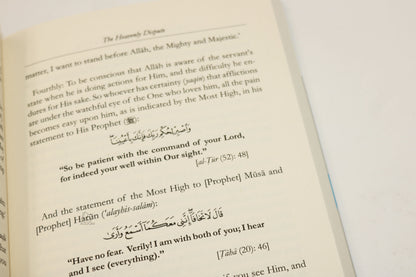 The Heavenly Dispute
matter, I want to stand before Allāh, the Mighty and Majestic.'
Fourthly: To be conscious that Allāh is aware of the servant's
state when he is doing actions for Him, and the difficulty he en-
dures for His sake. So whoever has certainty (yaqīn) that afflictions
are under the watchful eye of the One who loves him, all the pain
becomes easy upon him, as is indicated by the Most High, in his
statement to His Prophet (ﷺ):
وَاصْبِرْ لِحُكْمِ رَبِّكَ فَإِنَّكَ بِأَعْيُنِنَا
“So be patient with the command of your Lord,
for indeed your well within Our sight.”
[al-Tūr (52): 48]
And the statement of the Most High to [Prophet] Mūsā and
[Prophet] Hārūn ('alayhis-salām):
قَالَ لَا تَخَافَا إِنَّنِي مَعَكُمَا أَسْمَعُ وَأَرَىٰ
“Have no fear. Verily! I am with both of you; I hear
and I see (everything).”
[Tāhā (20): 46]
if you see Him, and